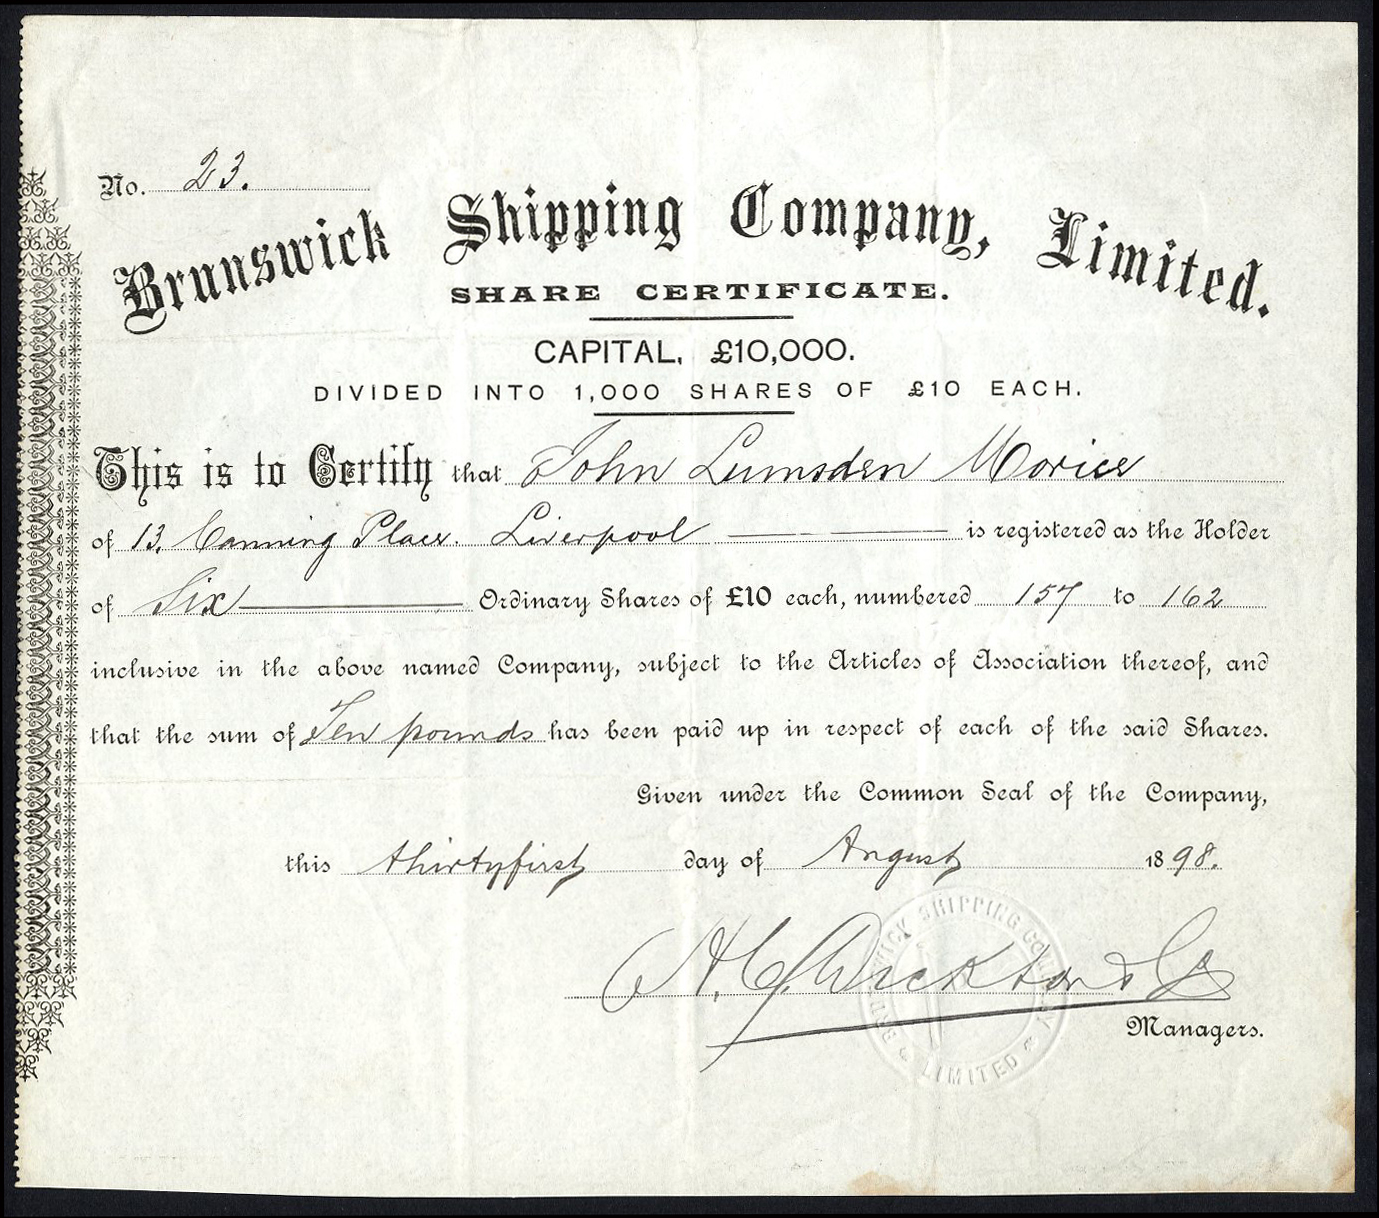 No. 23.
Brunswick Shipping Company, Limited.
SHARE CERTIFICATE.
CAPITAL, £10,000.
DIVIDED INTO 1,000 SHARES OF £10 EACH.
This is to Certify that John Lumsden Morice
of 13. Canning Place. Liverpool is registered as the Holder
of Six Ordinary Shares of £10 each, numbered 157 to 162
inclusive in the above named Company, subject to the Articles of Association thereof, and
that the sum of Ten pounds has been paid up in respect of each of the said Shares.
Given under the Common Seal of the Company,
this thirtyfirst day of August 1898.
BRUNSWICK SHIPPING COMPANY LIMITED
Managers.